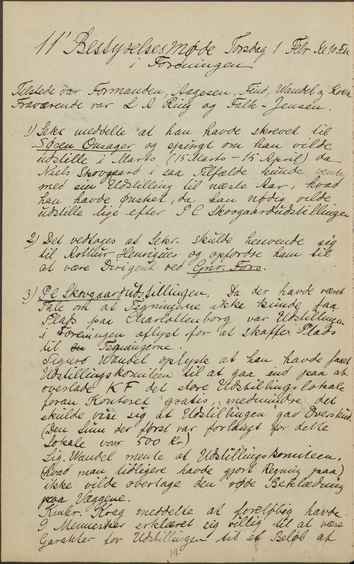 11' Bestyrelsesmøde Torsdag 1 Febr. Kl 10 Em
i Foreningen
Tilstede var Formanden, Aagesen, Find, Wandel &
Fraværende var L A Ring og Falk-Jensen.
1) Sekr. meddelte at han havde skrevet til
Søren Onsager og spurgt om han vilde
udstille i Marts (15 Marts - 15 April) da
Niels Skovgaard i saa Tilfælde kunde vente
med sin Udstilling til næste Aar, hvad
han havde ønsket, da han nødig vilde
udstille lige efter P C Skovgaardudstillingen
2) Det vedtages at Sekr. skulde henvende sig
til Henriques og opfordre ham til
at være Dirigent ved Gnr. Fors.
3) P C Skovgaardudstillingen. Da der havde været
Tale om at Tegningerne ikke kunde faa
Plads paa Charlottenborg var Udstillingen
i Foreningen aflyst for at skaffe Plads
til Tegningerne.
Sigurd Wandel oplyste at han havde faaet
Udstillingskomiteen til at gaa ind paa at
overlade KF det store Udstillingslokale
foran Kontoret gratis, medmindre det
skulde vise sig at Udstillingen gav Overskud.
(Den Sum der først var forlangt for dette
Lokale var 500 Kr.)
Sig. Wandel mente at Udstillingskomiteen,
(hvad man tidligere havde gjort Regning paa)
ikke vilde overtage den røde Beklædning
paa Væggene.
Krag meddelte at foreløbig havde
9 Mennesker erklæret sig villig til at være
Garanter for Udstillingen til et Beløb af